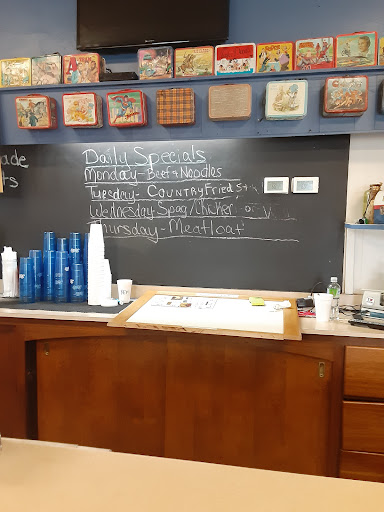 ade
ts
Daily Specials
Monday - Beef & Noodles
Tuesday - Country Fried
Wednesday Spag/Chicken
Thursday - Meatloaf